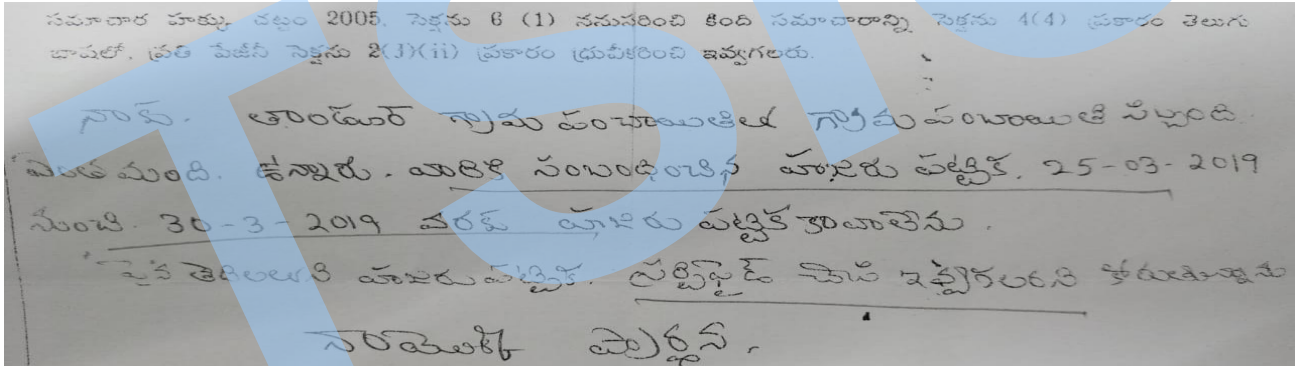 సమాచార హక్కు చట్టం 2005, సెక్షను 6 (1) ననుసరించి కింది సమాచారాన్ని సెక్షను 4(4) ప్రకారం తెలుగు
భాషలో, ప్రతి పేజీనీ సెక్షను 2(J)(ii) ప్రకారం ధ్రువీకరించి ఇవ్వగలరు.
నాకు. తాండూర్ గ్రామ పంచాయితీలో గ్రామ పంచాయితీ సిబ్బంది
ఎంత మంది. ఉన్నారు. వారికి సంబంధించిన హాజరు పట్టిక. 25-03-2019
నుంచి. 30-3-2019 వరకు హాజరు పట్టిక కావాలెను.
పైన తెదిలలని హాజరు పట్టిక. సర్టిఫైడ్ చేసి ఇవ్వగలరని కోరుతున్నాను
నాయొక్క ప్రార్థన.
TSIC